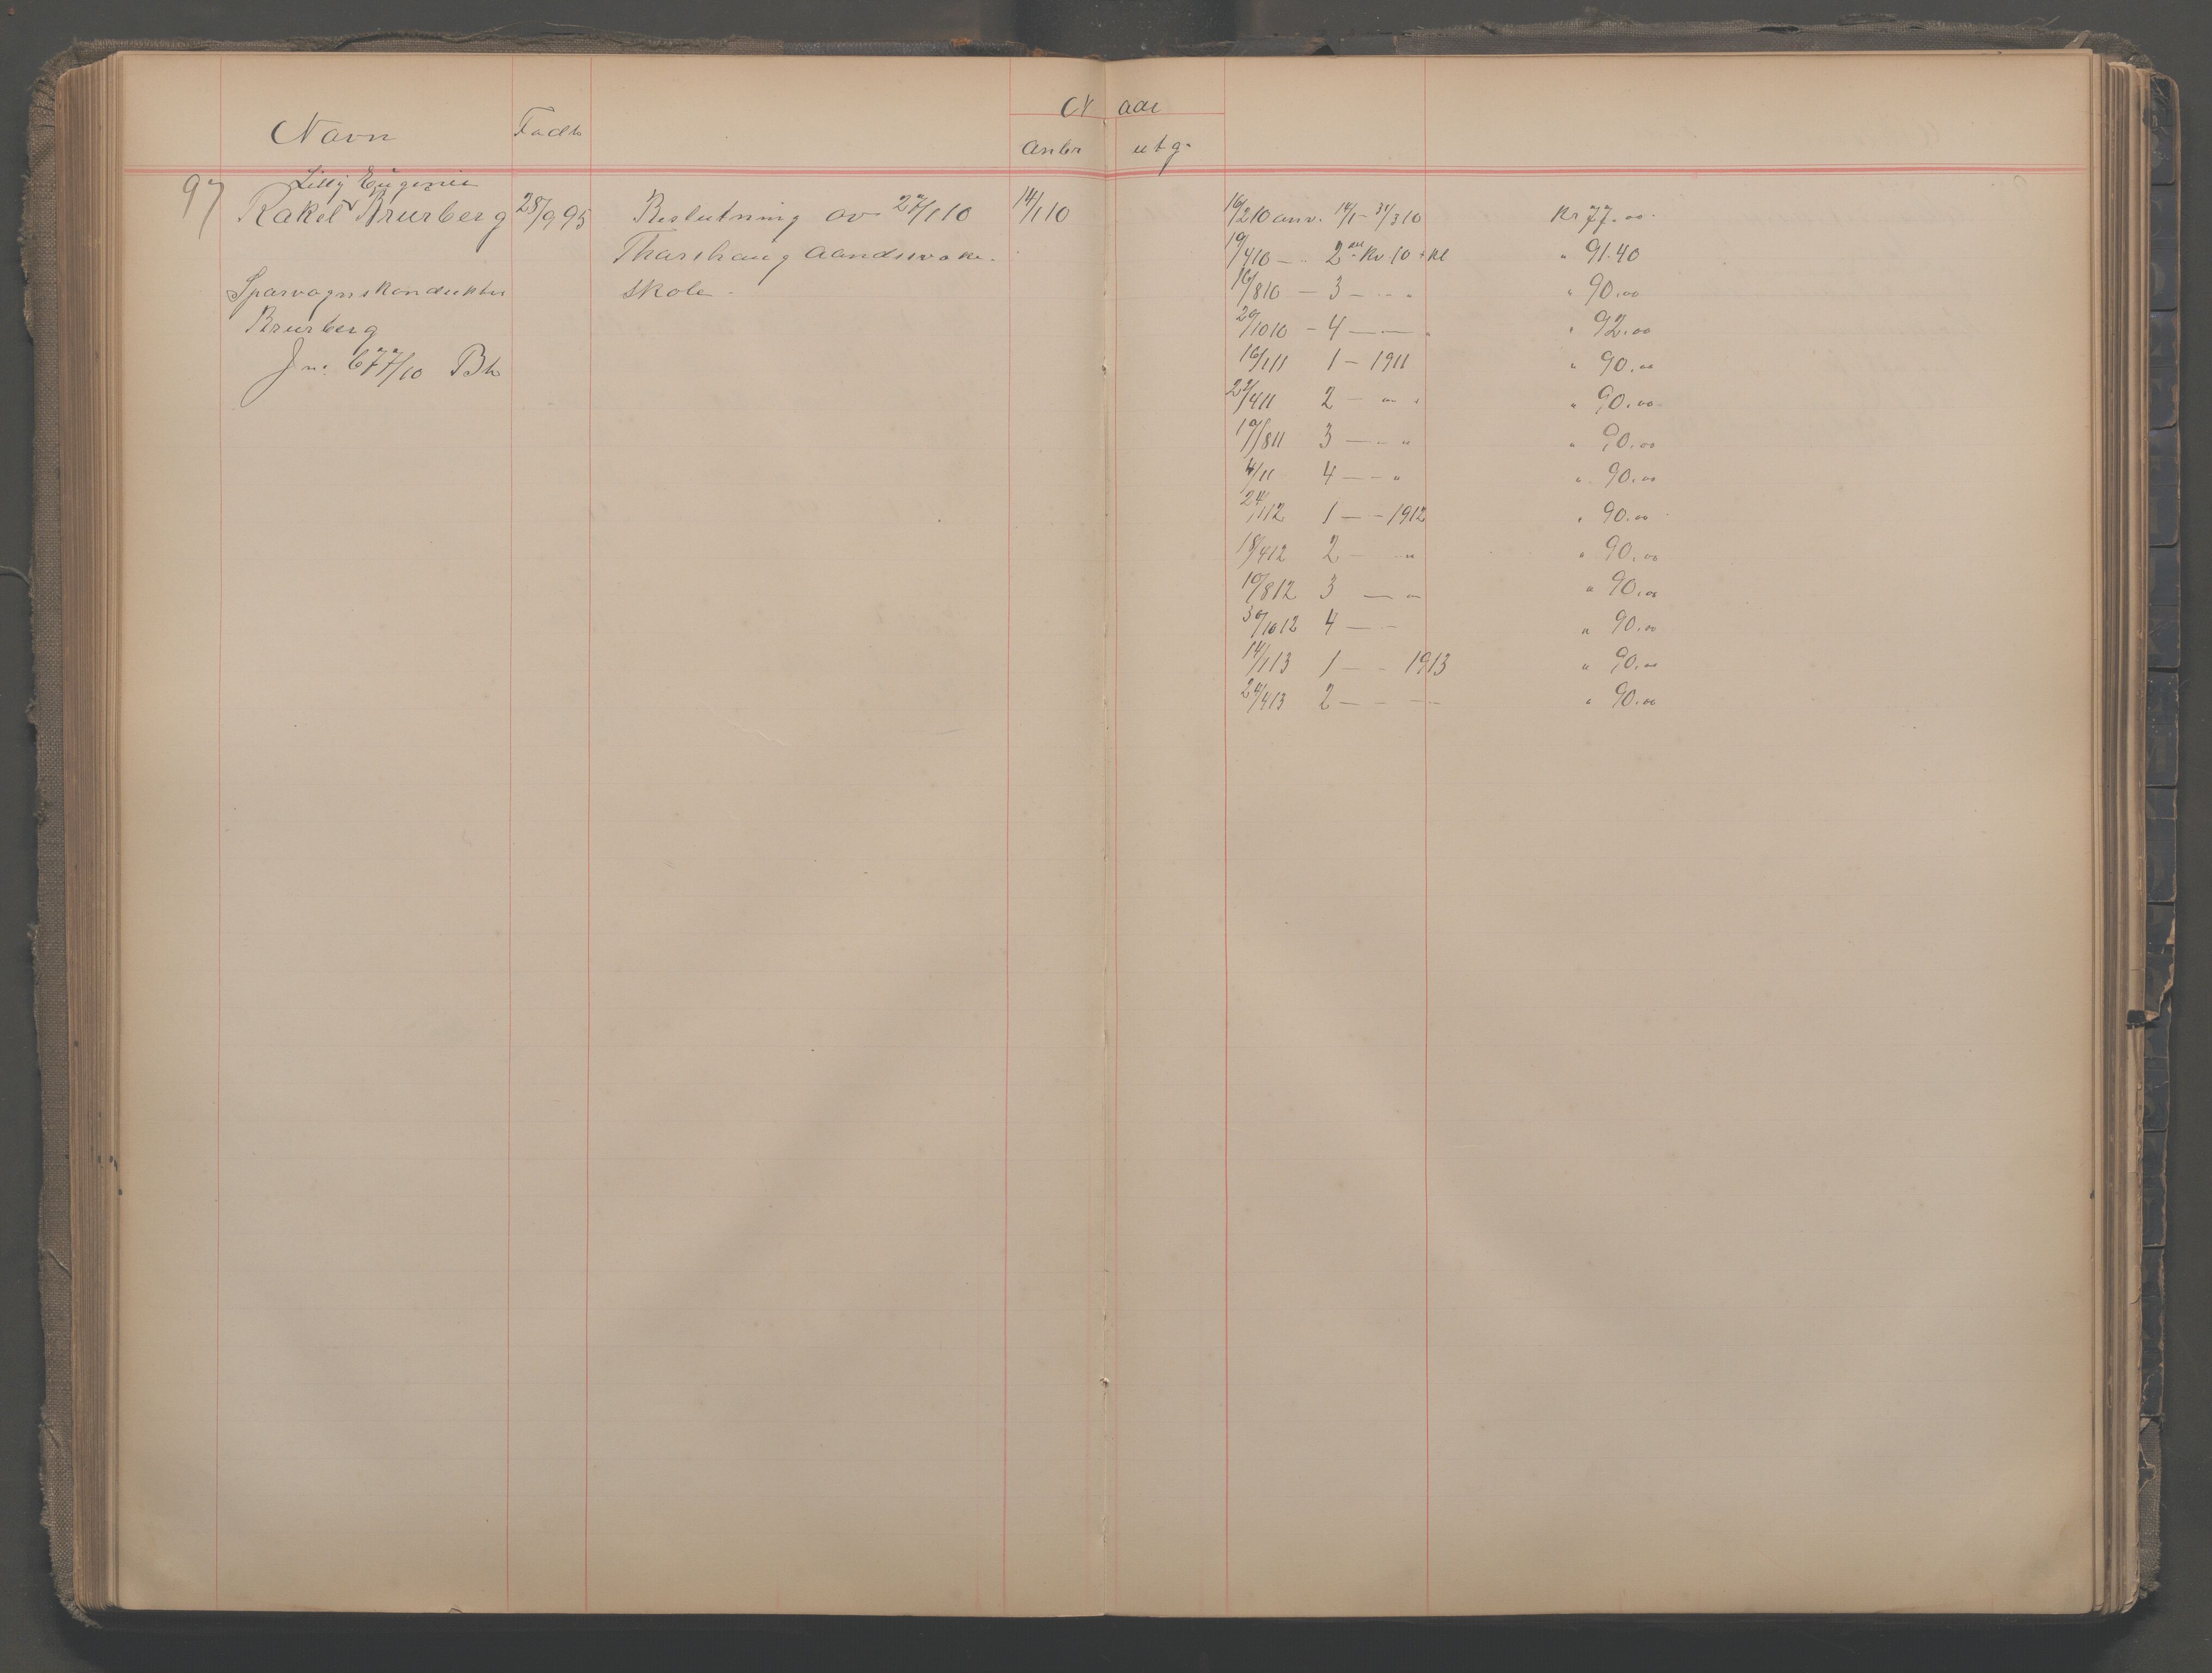 Naar
Navn Født anbr utg.
97 Lilly Eugenie
Rakel Brurberg 28/9 95 Beslutning av 27/1 10 14/1 10
Thorshaug Aandssvake-
Sporvognskonduktør skole
Brurberg
Jn. 677/10 Bh
16/2 10 anv. 14/1 - 31/3 10 Kr 77.00
19/4 10 — 2 det Kv. 10 + kl " 91.40
16/8 10 — 3 — - " " 90.00
20/10 10 - 4 — — " " 92.00
16/1 11 1 - 1911 " 90.00
22/4 11 2 - " " 90.00
19/8 11 3 — - " " 90.00
4/11 4 — - " " 90.00
24/1 12 1 — - 1912 " 90.00
18/4 12 2 - " " 90.00
19/8 12 3 — " 90.00
30/10 12 4 — - " 90.00
14/1 13 1 — - 1913 " 90.00
24/4 13 2 — - — " 90.00